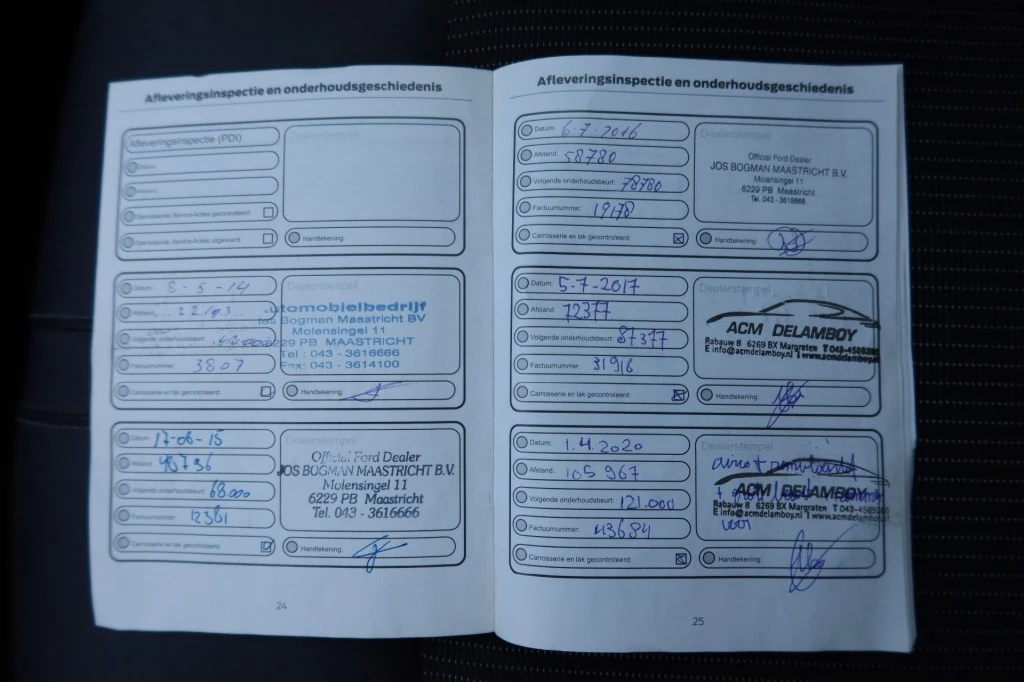 Afleveringsinspectie en onderhoudsgeschiedenis
Afleveringsinspectie (PDI)
Datum:
Afstand:
Openstaande Service-Acties gecontroleerd:
Openstaande Service-Acties uitgevoerd:
Dealerstempel
Handtekening:
Datum: 8-5-14
Afstand:
Volgende onderhoudsbeurt:
Factuurnummer: 3807
Carrosserie en lak gecontroleerd:
Dealerstempel
utomobielbedrijf
Jos Bogman Maastricht BV
Molensingel 11
6229 PB MAASTRICHT
Tel : 043 - 3616666
Fax: 043 - 3614100
Handtekening:
Datum: 17-06-15
Afstand: 48736
Volgende onderhoudsbeurt: 68.000
Factuurnummer: 12381
Carrosserie en lak gecontroleerd:
Dealerstempel
Official Ford Dealer
JOS BOGMAN MAASTRICHT B.V.
Molensingel 11
6229 PB Maastricht
Tel. 043 - 3616666
Handtekening:
24
Afleveringsinspectie en onderhoudsgeschiedenis
Datum: 6-7-2016
Afstand: 58780
Volgende onderhoudsbeurt: 78780
Factuurnummer: 19178
Carrosserie en lak gecontroleerd:
Dealerstempel
Official Ford Dealer
JOS BOGMAN MAASTRICHT B.V.
Molensingel 11
6229 PB Maastricht
Tel. 043 - 3616666
Handtekening:
Datum: 5-7-2017
Afstand: 72377
Volgende onderhoudsbeurt: 87377
Factuurnummer: 31916
Carrosserie en lak gecontroleerd:
Dealerstempel
ACM DELAMBOY
Rabauw 8 6269 BX Margraten T 043-4589
E info@acmdelamboy.nl I www.acmdelamboy
Handtekening:
Datum: 1.4.2020
Afstand: 105 967
Volgende onderhoudsbeurt: 121.000
Factuurnummer: 43684
Carrosserie en lak gecontroleerd:
Dealerstempel
ACM DELAMBOY
Rabauw 8 6269 BX Margraten T 043-4589
E info@acmdelamboy.nl I www.acmdelamboy
voor
Handtekening:
25